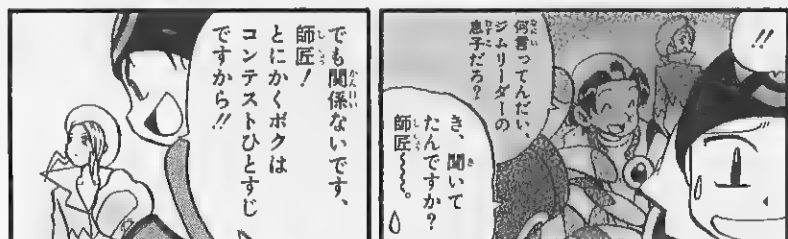 !!
何言ってんだい、
ジムリーダーの
息子だろ?
き、聞いて
たんですか?
師匠〜〜〜。
でも関係ないです、
師匠!
とにかくボクは
コンテストひとすじ
ですから!!